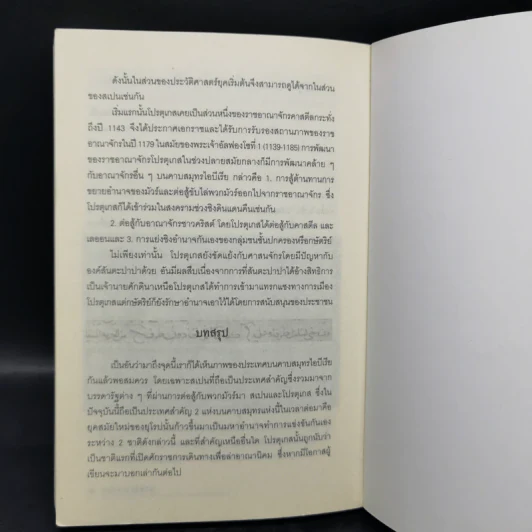 ดังนั้นในส่วนของประวัติศาสตร์ยุคเริ่มต้นจึงสามารถดูได้จากในส่วน
ของสเปนเช่นกัน
เริ่มแรกนั้นโปรตุเกสเคยเป็นส่วนหนึ่งของราชอาณาจักรคาสตีลกระทั่ง
ถึงปี 1143 จึงได้ประกาศเอกราชและได้รับการรับรองสถานภาพของราช
อาณาจักรในปี 1179 ในสมัยของพระเจ้าอัลฟองโซที่ 1 (1139-1185) การพัฒนา
ของราชอาณาจักรโปรตุเกสในช่วงปลายสมัยกลางก็มีการพัฒนาคล้าย ๆ
กับอาณาจักรอื่น ๆ บนคาบสมุทรไอบีเรีย กล่าวคือ 1. การสู้ต้านทานการ
ขยายอำนาจของมัวร์และต่อสู้ขับไล่พวกมัวร์ออกไปจากราชอาณาจักร ซึ่ง
โปรตุเกสก็ได้เข้าร่วมในสงครามช่วงชิงดินแดนคืนเช่นกัน
2. ต่อสู้กับอาณาจักรชาวคริสต์ โดยโปรตุเกสได้ต่อสู้กับคาสตีล และ
เลออนและ 3. การแย่งชิงอำนาจกันเองของกลุ่มชนชั้นปกครองหรือกษัตริย์
ไม่เพียงเท่านั้น โปรตุเกสยังขัดแย้งกับศาสนจักรโดยมีปัญหากับ
องค์สันตะปาปาด้วย อันมีผลสืบเนื่องจากการที่สันตะปาปาได้อ้างสิทธิการ
เป็นเจ้านายศักดินาเหนือโปรตุเกสได้ทำการเข้ามาแทรกแซงทางการเมือง
โปรตุเกสแต่กษัตริย์ก็ยังรักษาอำนาจเอาไว้ได้โดยการสนับสนุนของประชาชน
บทสรุป
เป็นอันว่ามาถึงจุดนี้เราก็ได้เห็นภาพของประเทศบนคาบสมุทรไอบีเรีย
กันแล้วพอสมควร โดยเฉพาะสเปนที่ถือเป็นประเทศสำคัญซึ่งรวมมาจาก
บรรดารัฐต่าง ๆ ที่ผ่านการต่อสู้กับพวกมัวร์มา สเปนและโปรตุเกส ซึ่งใน
ปัจจุบันนี้ถือเป็นประเทศสำคัญ 2 แห่งบนคาบสมุทรแห่งนี้ในเวลาต่อมาคือ
ยุคสมัยใหม่ของยุโรปนั้นก้าวขึ้นมาเป็นมหาอำนาจทำการแข่งขันกันเอง
ระหว่าง 2 ชาติดังกล่าวนี้ และที่สำคัญเหนืออื่นใด โปรตุเกสนั้นถูกนับว่า
เป็นชาติแรกที่เปิดศักราชการเดินทางเพื่อล่าอาณานิคม ซึ่งหากมีโอกาสผู้
เขียนจะมาบอกเล่ากันต่อไป